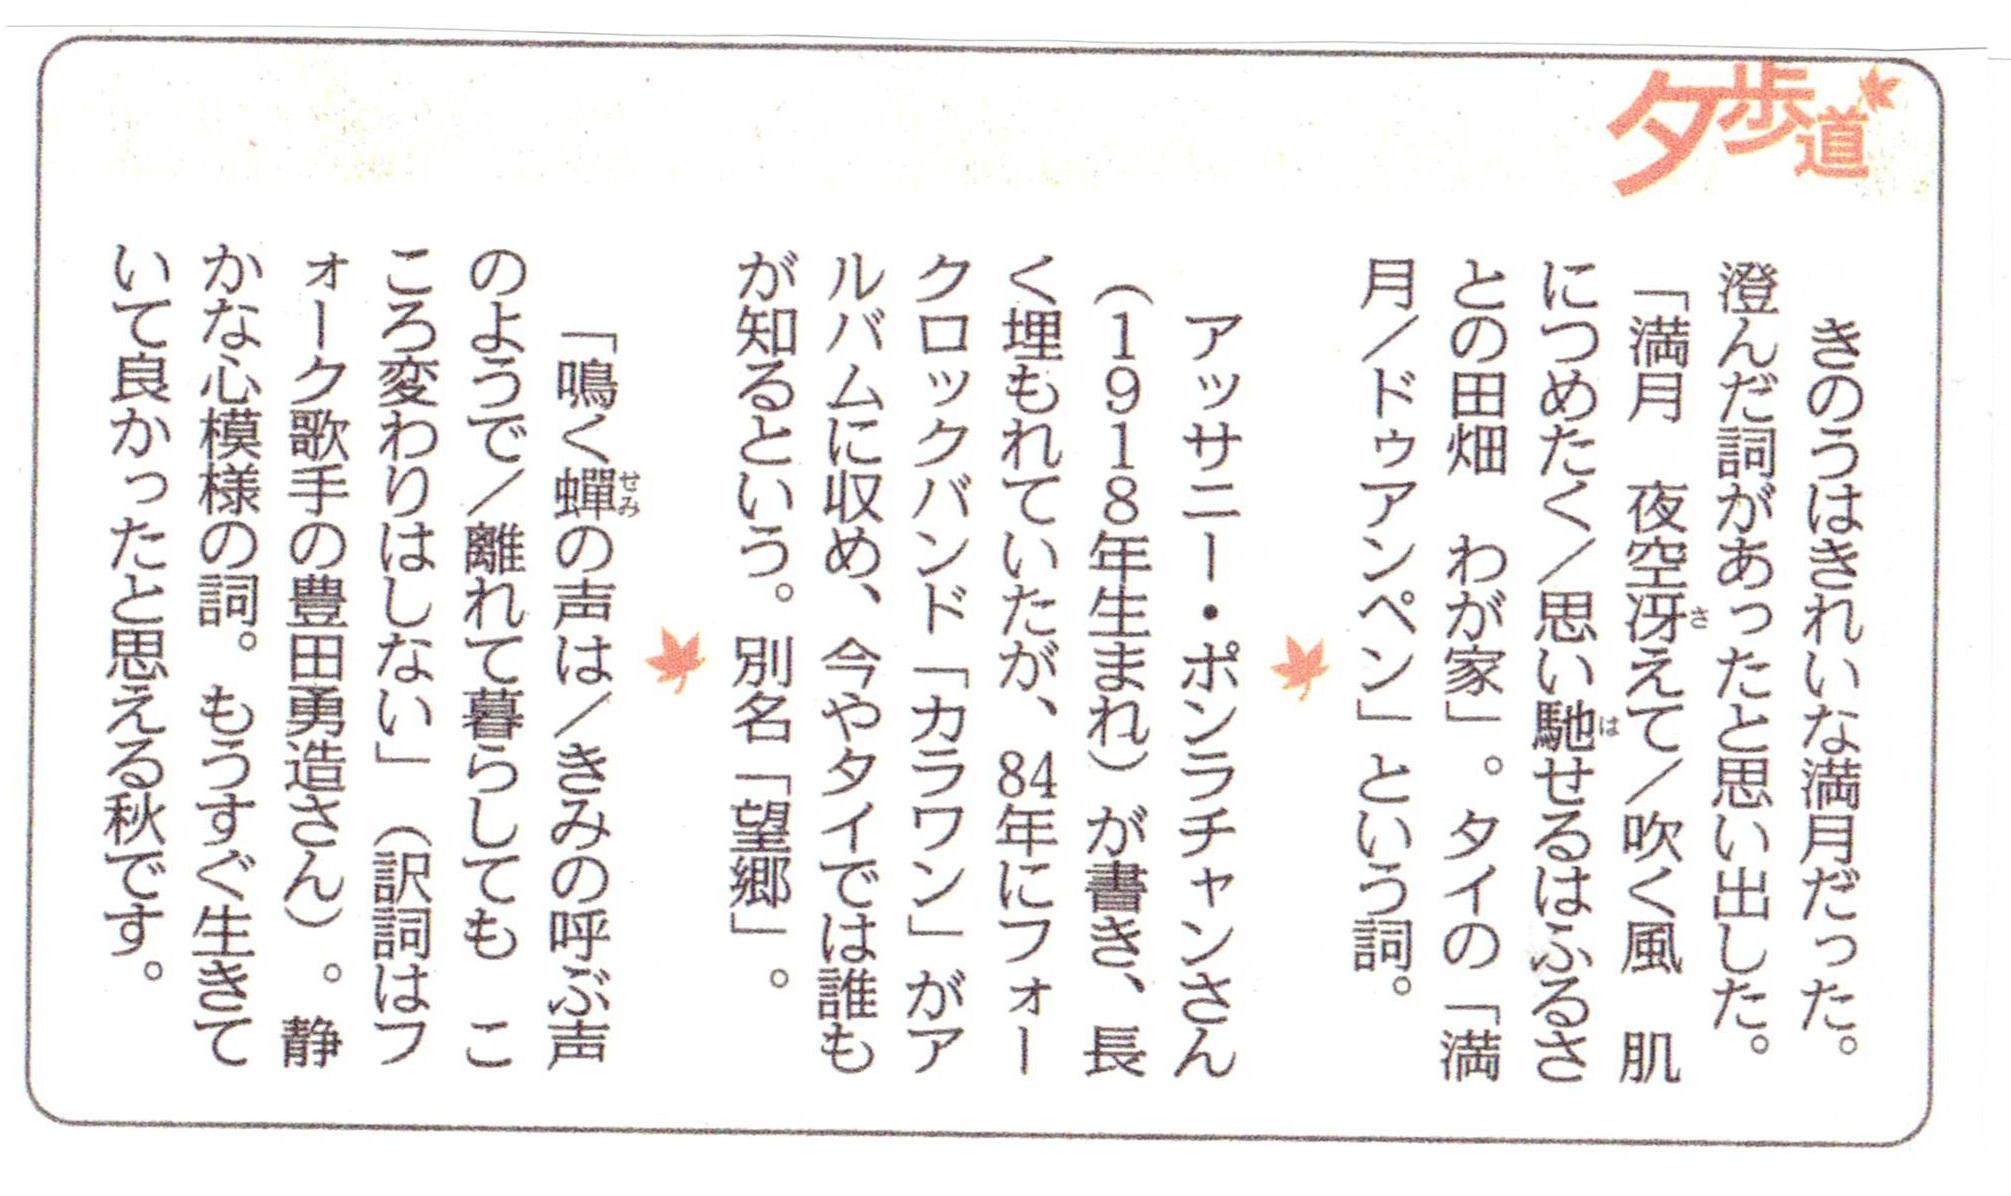 夕歩道
きのうはきれいな満月だった。
澄んだ詞があったと思い出した。
「満月　夜空冴えて／吹く風　肌
さ
につめたく／思い馳せるはふるさ
は
との田畑　わが家」。タイの「満
月／ドゥアンペン」という詞。
アッサニー・ポンラチャンさん
（1918年生まれ）が書き、長
く埋もれていたが、84年にフォー
クロックバンド「カラワン」がア
ルバムに収め、今やタイでは誰も
が知るという。別名「望郷」。
「鳴く蟬の声は／きみの呼ぶ声
せみ
のようで／離れて暮らしても　こ
ころ変わりはしない」（訳詞はフ
ォーク歌手の豊田勇造さん）。静
かな心模様の詞。もうすぐ生きて
いて良かったと思える秋です。